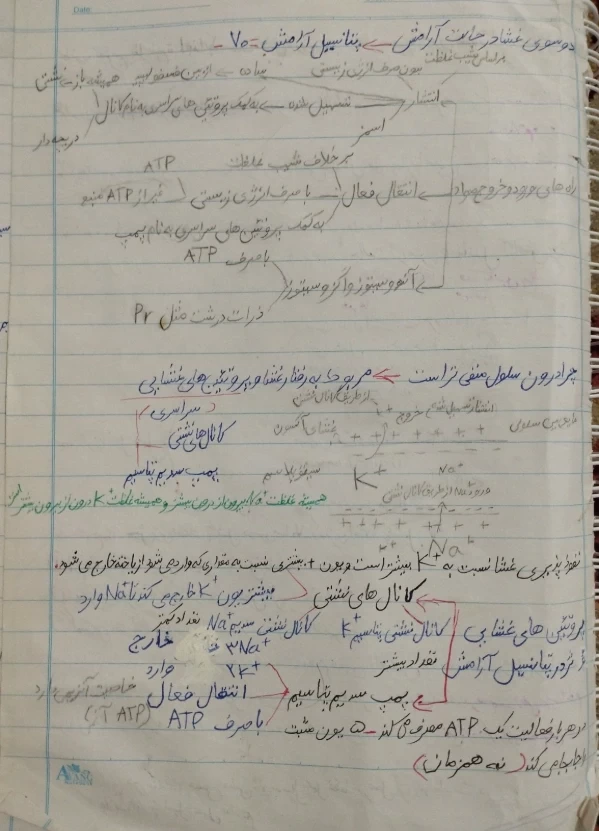 Date:
دو سوی غشا در حالت آرامش ← پتانسیل آرامش ← ۷۰-
بر اساس شیب غلظت
بدون صرف انرژی زیستی
ساده ← از بین فسفولیپید
همیشه باز ← نشتی
انتشار
تسهیل شده ← به کمک پروتئین های سراسری به نام کانال
دریچه دار
اسمز
بر خلاف شیب غلظت
ATP
راه های ورود و خروج مواد
← انتقال فعال
با صرف انرژی زیستی
غیر از ATP منبع
به کمک پروتئین های سراسری به نام پمپ
با صرف ATP
← آندوسیتوز و اگزوسیتوز
ذرات درشت مثل Pr
چرا درون سلول منفی تر است ← مربوط به رفتار غشا و پروتئین های غشایی
سراسری
از طریق کانال نشتی
انتشار تسهیل شده
خروج K+
مایع بین سلولی
غشای آکسون
کانال های نشتی
+ + + + + +
سیتوپلاسم
K+
Na+
پمپ سدیم پتاسیم
ورود Na از طریق کانال نشتی
همیشه غلظت Na بیرون از درون بیشتر و همیشه غلظت K+ درون از بیرون بیشتر
+ + + + + + +
K+
Na+
نفوذپذیری غشا نسبت به K+ بیشتر است و یون + بیشتری نسبت به مقداری که وارد می شود از یاخته خارج می شود.
← کانال های نشتی
بیشتر یون K+ خارج می کند تا Na وارد
پروتئین های غشایی
کانال نشتی پتاسیم K+
کانال نشتی سدیم Na+
تعداد کمتر
تعداد بیشتر
در پتانسیل آرامش
۳Na+
خارج
۲K+
وارد
← پمپ سدیم پتاسیم
انتقال فعال
خاصیت آنزیمی دارد
با صرف ATP
(ATP آز)
در هر بار فعالیت یک ATP مصرف می کند - ۵ یون مثبت
را جابجا می کند (نه همزمان)